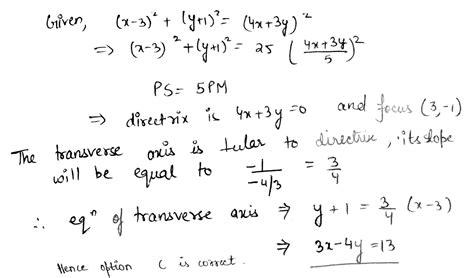 Given, (x-3)² + (y+1)² = (4x+3y)²
⇒ (x-3)² + (y+1)² = 25 ((4x+3y)/5)²
PS = 5PM
⇒ directrix is 4x+3y=0 and focus (3,-1)
The transverse axis is ⊥ular to directrix, its slope
will be equal to -1/(-4/3) = 3/4
∴ eqⁿ of transverse axis ⇒ y+1 = 3/4 (x-3)
⇒ 3x-4y=13
Hence option C is correct.